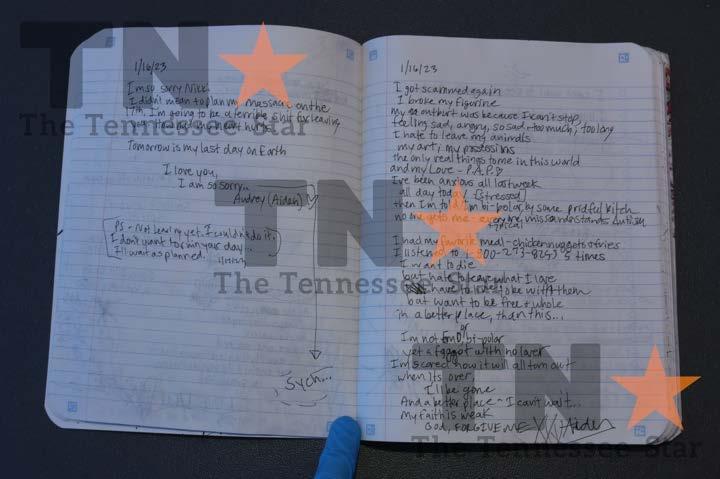 1/16/23
I'm so sorry Nikki
I didn't mean to plan my massacre on the
17th. I'm going to be a terrible shit for leaving
you. How bad my heart hurts...
Tomorrow is my last day on Earth
I love you,
I am so sorry..
Audrey (Aiden)
PS - Not leaving yet. I couldn't do it.
I don't want to ruin your day...
I'll wait as planned.
1/17/23
, Sych...
1/16/23
I got scammed again
I broke my figurine
my outburst was because I can't stop,
feeling sad, angry, so sad - too much, too long
I hate to leave my animals
my art, my possessions
the only real things to me in this world
and my Love - P.A.P.
I've been anxious all last week
all day today [stressed]
then I'm told I'm bi-polar, by some pridful bitch
no one gets me - everyone missunderstands Autism
typical
I had my favorite meal - chicken nuggets & fries
I listened to 1-800-273-8255 5 times
I want to die
but hate to leave what I love
have to love to be with them
but want to be free & whole
in a better place, than this...
or
I'm not bi-polar
yet a faggot with no lover
I'm scared how it will all turn out
when its over,
I'll be gone
And a better place - I can't wait...
My faith is weak
God, FORGIVE ME Aiden
TN
The Tennessee Star
TN
The Tennessee Star
TN
The Tennessee Star